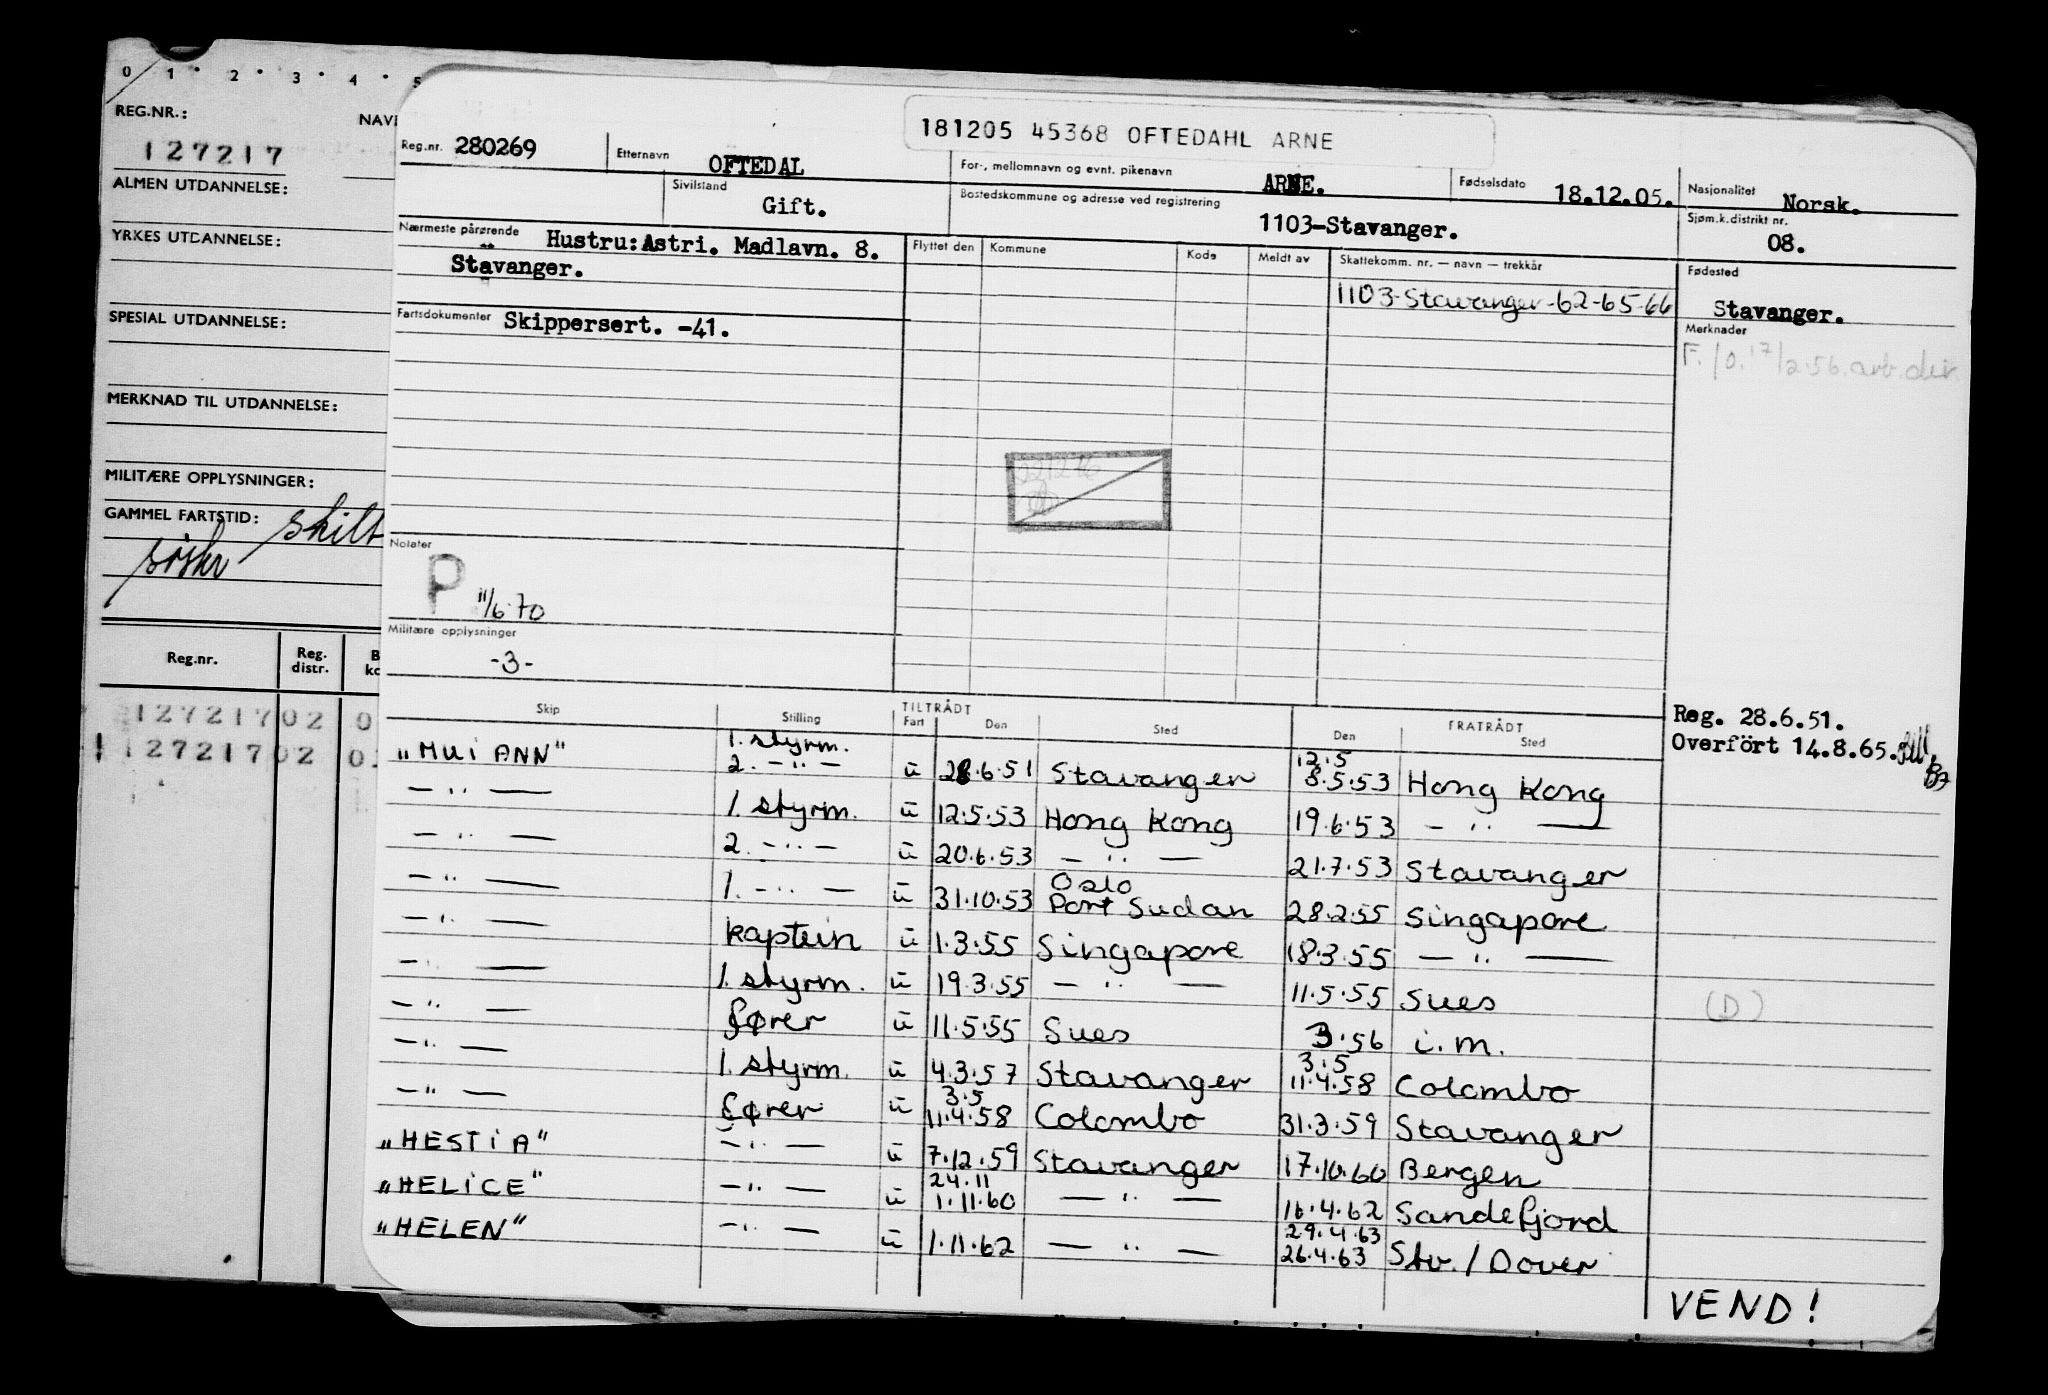 0 1 2 3 4 5
REG.NR.:
NAV
127217
ALMEN UTDANNELSE:
YRKES UTDANNELSE:
SPESIAL UTDANNELSE:
MERKNAD TIL UTDANNELSE:
MILITÆRE OPPLYSNINGER:
GAMMEL FARTSTID: skilt
Reg.nr. Reg. distr. B ko
127217 02 0
! 127217 02 0
181205 45368 OFTEDAHL ARNE
Reg.nr. 280269 Etternavn OFTEDAL For-, mellomnavn og evnt. pikenavn ARNE. Fødselsdato 18.12.05. Nasjonalitet Norsk.
Sivilstand Gift. Bostedskommune og adresse ved registrering 1103-Stavanger. Sjøm.k.distrikt nr. 08.
Nærmeste pårørende Hustru: Astri. Madlavn. 8.
Stavanger.
Flyttet den Kommune Kode Meldt av Skattekomm. nr. — navn — trekkår
1103-Stavanger-62-65-66
Fødested
Stavanger.
Fartsdokumenter Skippersert. -41.
Merknader
F./0. 17/2.56. arb.dir.
Notater
P 11/6.70
Militære opplysninger
-3-
Reg. 28.6.51.
Overfört 14.8.65.
Skip Stilling TILTRÅDT Fart Den Sted FRATRÅDT Den Sted
1. styrm. 12.5
"HUI ANN" 2. -"- u 28.6.51 Stavanger 8.5.53 Hong Kong
-"- 1. styrm. u 12.5.53 Hong Kong 19.6.53 -"-
-"- 2. -"- u 20.6.53 -"- 21.7.53 Stavanger
Oslo
-"- 1. -"- u 31.10.53 Port Sudan 28.2.55 Singapore
-"- kaptein u 1.3.55 Singapore 18.3.55 -"-
-"- 1. styrm. u 19.3.55 -"- 11.5.55 Sues
(D)
-"- fører u 11.5.55 Sues 3.56 i.m.
3.5
-"- 1. styrm. u 4.3.57 Stavanger 11.4.58 Colombo
3.5
-"- fører u 11.4.58 Colombo 31.3.59 Stavanger
"HESTIA" -"- u 7.12.59 Stavanger 17.10.60 Bergen
24.11
"HELICE" -"- u 1.11.60 -"- 16.4.62 Sandefjord
29.4.63
"HELEN" -"- u 1.11.62 -"- 26.4.63 Stv./Dover
VEND!